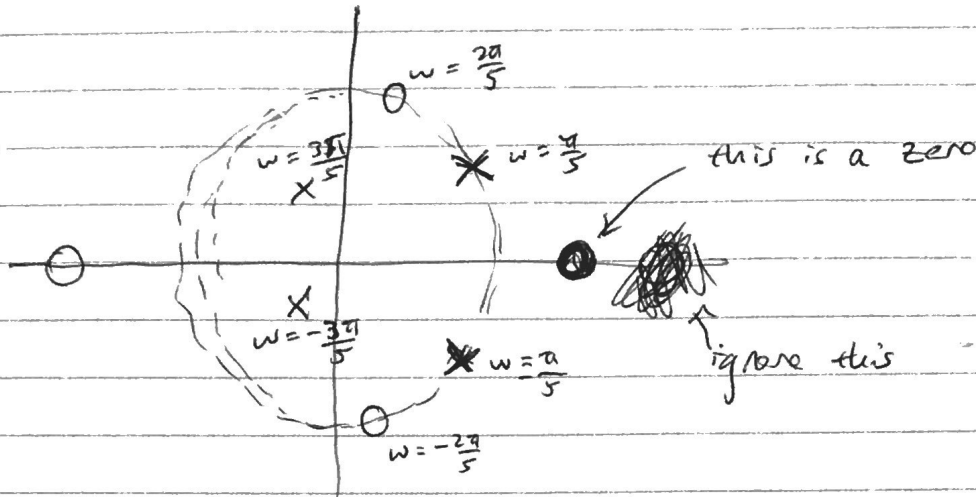 w = 2π/5
w = 3π/5
w = π/5
this is a zero
w = -3π/5
w = π/5
ignore this
w = -2π/5